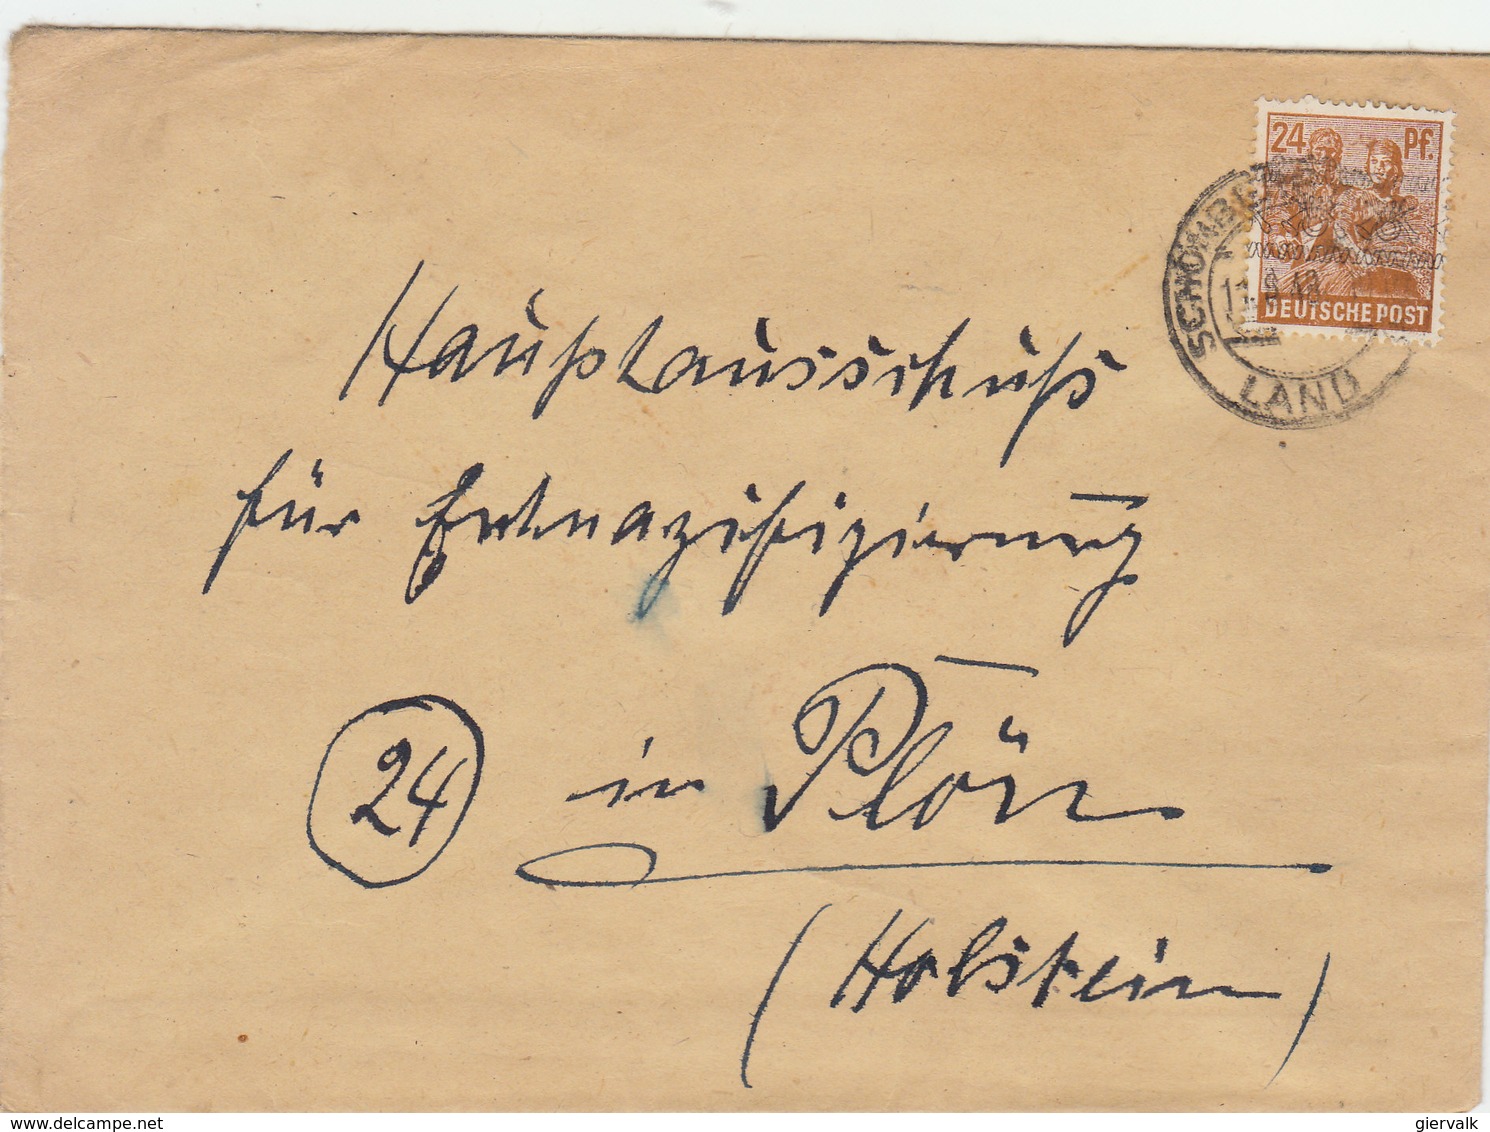 24 Pf.
DEUTSCHE POST
LAND
Hauptausschuß
für Entnazifizierung
24 in Plön
(Holstein)
delcampe.net
giervalk